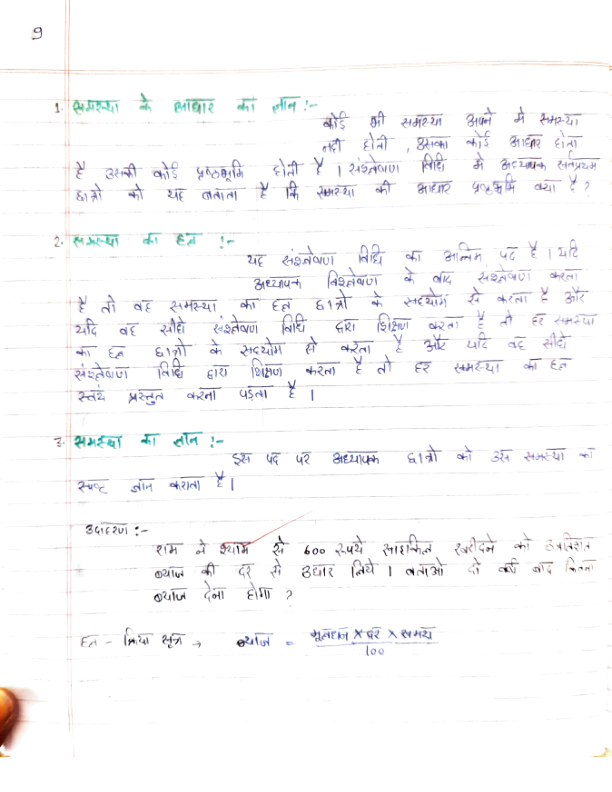 9
1. समस्या के आधार का ज्ञान :-
कोई भी समस्या अपने में समस्या
नही होती , उसका कोई आधार होता
है उसकी कोई पृष्ठभूमि होती है । संश्लेषण विधि में अध्यापक सर्वप्रथम
छात्रो को यह बताता है कि समस्या की आधार पृष्ठभूमि क्या है ?
2. समस्या का हल :-
यह संश्लेषण विधि का अन्तिम पद है । यदि
अध्यापक विश्लेषण के बाद संश्लेषण करता
है तो वह समस्या का हल छात्रो के सहयोग से करता है और
यदि वह सीधे संश्लेषण विधि द्वारा शिक्षण करता है तो हर समस्या
का हल छात्रो के सहयोग से करता है और यदि वह सीधे
संश्लेषण विधि द्वारा शिक्षण करता है तो हर समस्या का हल
स्वयं प्रस्तुत करना पड़ता है ।
3. समस्या का ज्ञान :-
इस पद पर अध्यापक छात्रो को उस समस्या का
स्पष्ट ज्ञान कराता है ।
उदाहरण :-
राम ने श्याम से 600 रुपये साइकिल खरीदने को
ब्याज की दर से उधार लिये । बताओ दो वर्ष बाद कितना
ब्याज देना होगा ?
हल - क्रिया सूत्र → ब्याज = मूलधन × दर × समय
100